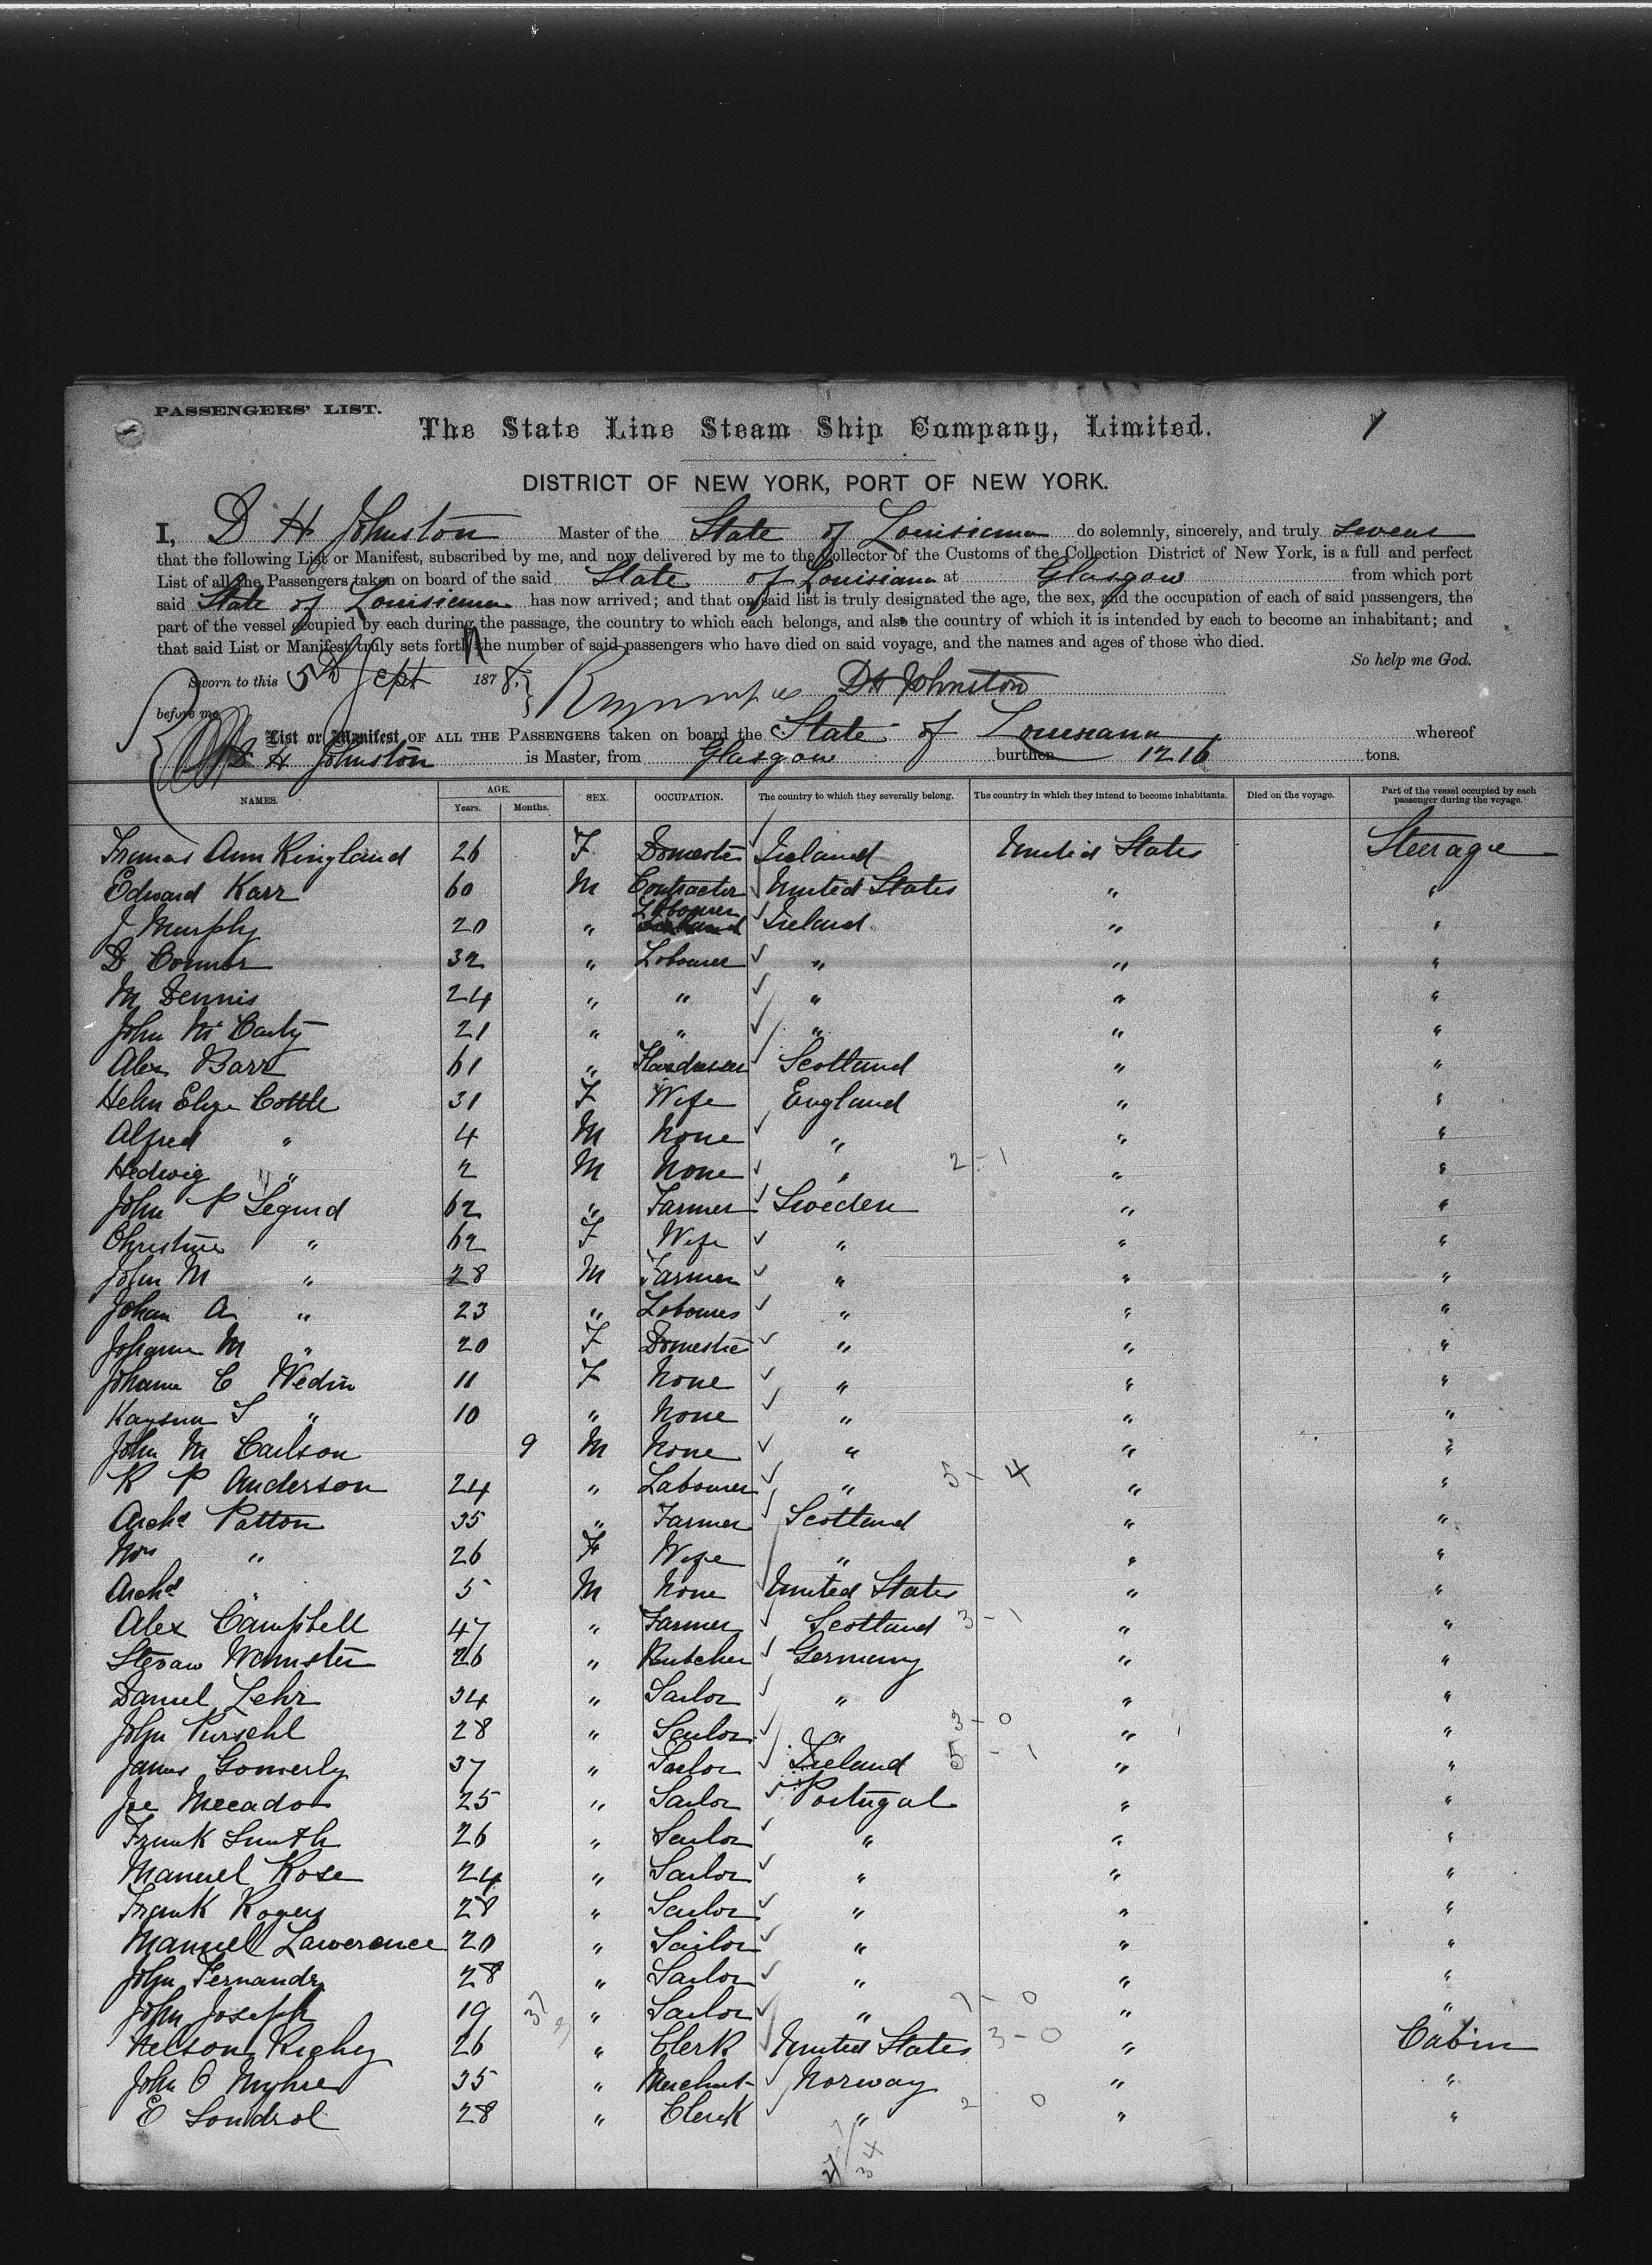 PASSENGERS' LIST.
The State Line Steam Ship Company, Limited.
1
DISTRICT OF NEW YORK, PORT OF NEW YORK.
I, D H Johnston Master of the State of Louisiana do solemnly, sincerely, and truly swear
that the following List or Manifest, subscribed by me, and now delivered by me to the Collector of the Customs of the Collection District of New York, is a full and perfect
List of all the Passengers taken on board of the said State of Louisiana at Glasgow from which port
said State of Louisiana has now arrived; and that on said list is truly designated the age, the sex, and the occupation of each of said passengers, the
part of the vessel occupied by each during the passage, the country to which each belongs, and also the country of which it is intended by each to become an inhabitant; and
that said List or Manifest truly sets forth the number of said passengers who have died on said voyage, and the names and ages of those who died.
So help me God.
Sworn to this 5th Sept 1878. D H Johnston
before me
List or Manifest OF ALL THE PASSENGERS taken on board the State of Louisiana whereof
D H Johnston is Master, from Glasgow burthen 1216 tons.
NAMES. AGE. Years. Months. SEX. OCCUPATION. The country to which they severally belong. The country in which they intend to become inhabitants. Died on the voyage. Part of the vessel occupied by each passenger during the voyage.
Ann Kingland 26 F Domestic Ireland United States Steerage
Edward Karr 60 M Contractor United States " "
J Murphy 20 " Labourer Ireland " "
D Connor 32 " Labourer " " "
M Dennis 24 " " " " "
John McCarty 21 " " " " "
Alex Barr 61 " Scotland " "
Helen Eliza Cottle 31 F Wife England " "
Alfred " 4 M None " " "
Hedwig " 2 M None " 2-1 " "
John P Segurd 62 " Farmer Sweden " "
Christine " 62 F Wife " " "
John M " 28 M Farmer " " "
Johan A " 23 " Labourer " " "
Johanna M " 20 F Domestic " " "
Johanna C Wedin 11 F None " " "
S " 10 " None " " "
John M Carlson 9 M None " " "
K P Anderson 24 " Labourer " 5-4 " "
Archd Patton 35 " Farmer Scotland " "
Mrs " 26 F Wife " " "
Archd " 5 M None United States " "
Alex Campbell 47 " Farmer Scotland 3-1 " "
26 " Butcher Germany " "
Daniel Lehr 34 " Sailor " " "
John Purschl 28 " Sailor " 3-0 " "
James Gomerly 37 " Sailor Ireland 5-1 " "
Joe Mecado 25 " Sailor Portugal " "
Frank Smith 26 " Sailor " " "
Manuel Rose 24 " Sailor " " "
Frank Rogers 28 " Sailor " " "
Manuel Lawerence 20 " Sailor " " "
John Fernandz 28 " Sailor " " "
John Joseph 19 37 " Sailor " 7-0 " "
Nelson Richey 26 " Clerk United States 3-0 " Cabin
John O Myhre 35 " Merchant Norway " "
E Sondrol 28 " Clerk " 2 0 " "
34